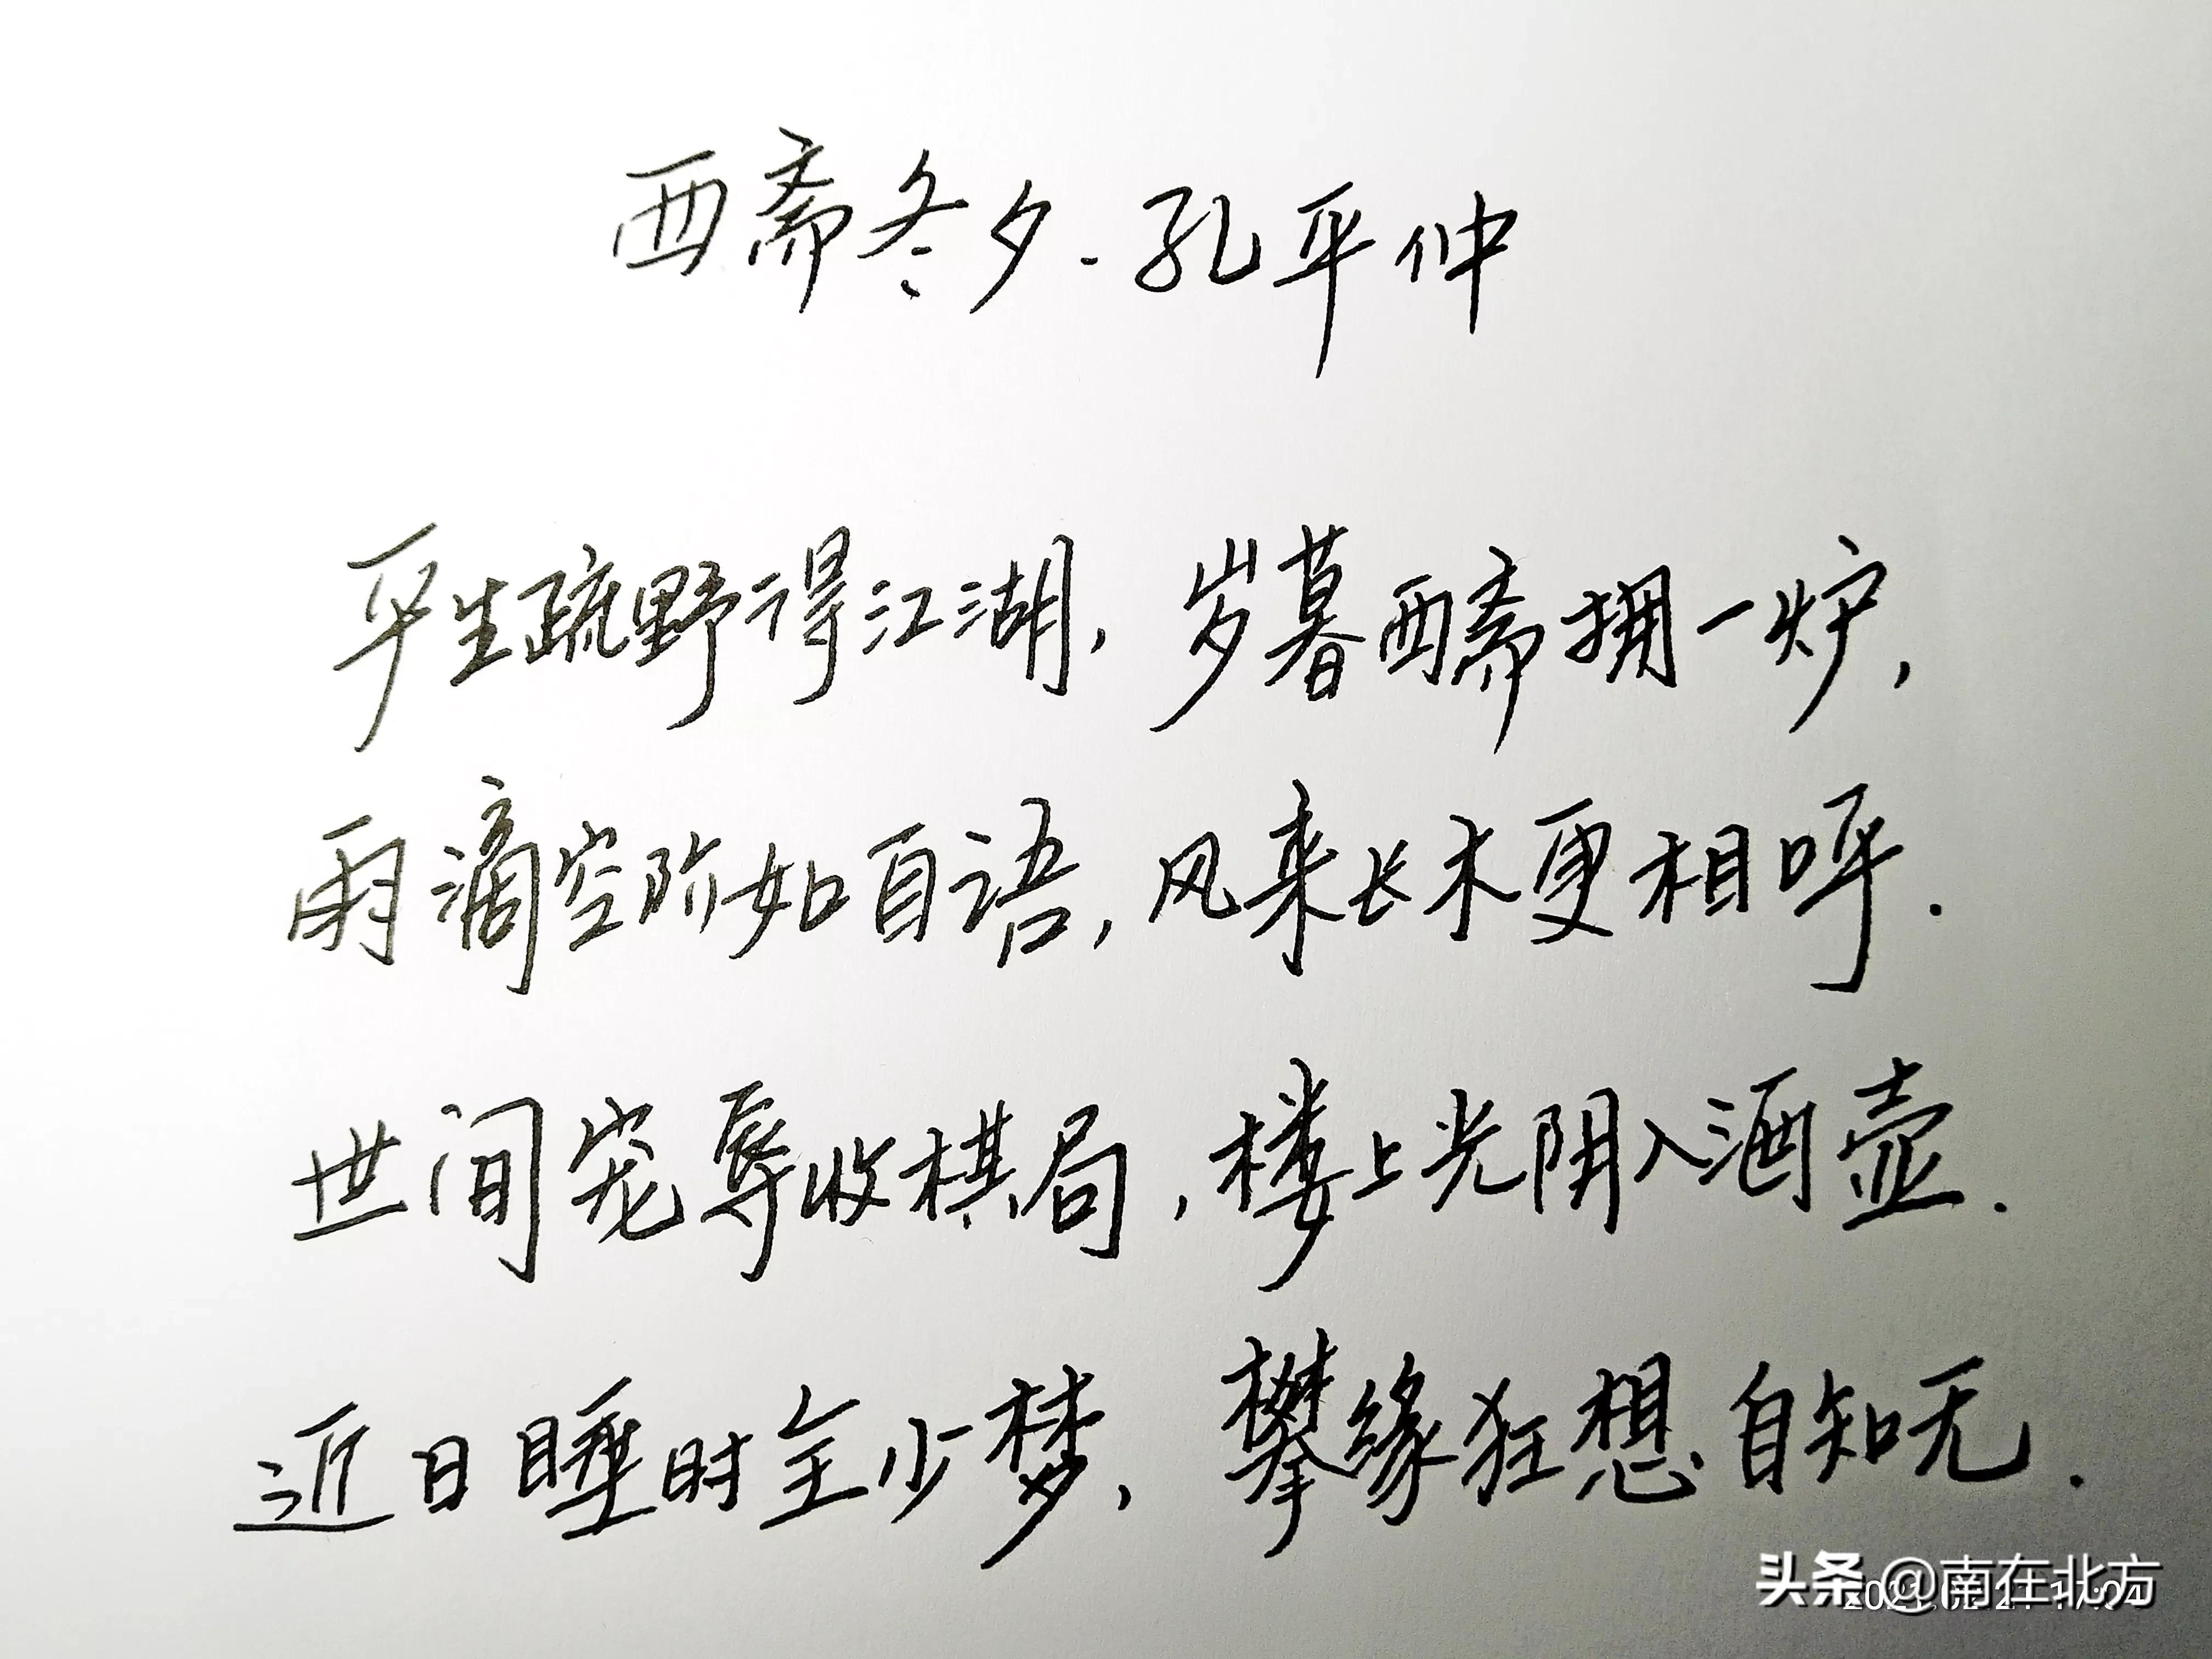 西斋冬夕.孔平仲
平生疏野得江湖,岁暮西斋拥一炉,
雨滴空阶如自语,风来长木更相呼.
世间宠辱收棋局,楼上光阴入酒壶.
近日睡时全少梦,攀缘狂想自知无.
头条@南在北方